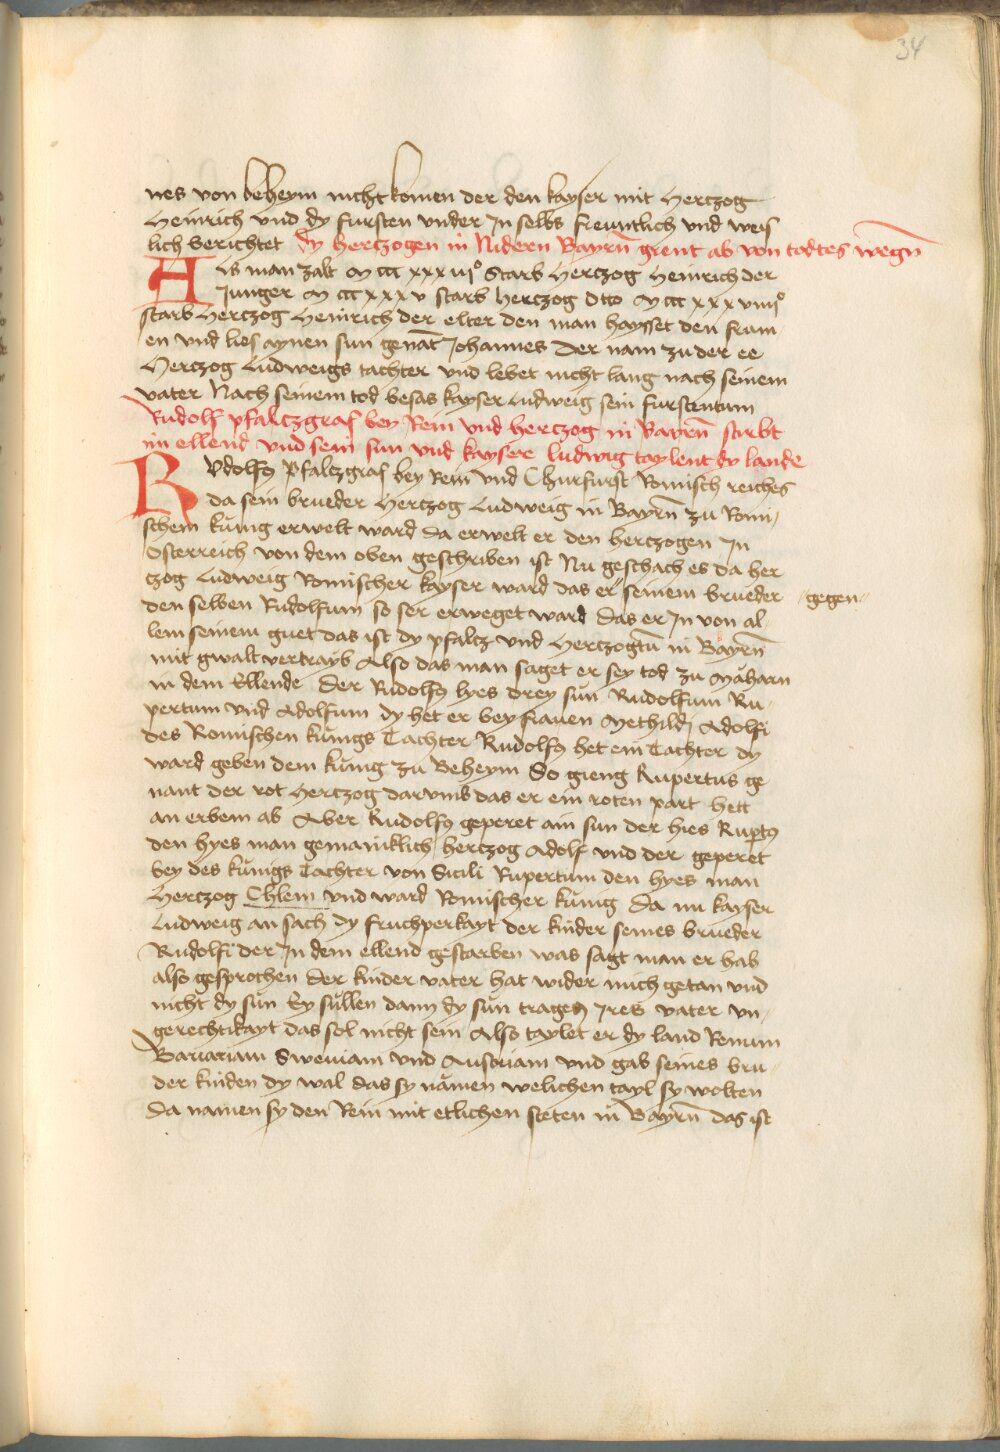 34
nes von beheym nicht komen der den kayser mit Hertzog
Heinrich vnd dy fursten vnder In selbs freuntlich vnd weis
lich berichtet dy hertzogen in Nideren Bayrn̄ grent ab von todtes wegn̄
Als man zalt M ccc xxx iijº starb Hertzog Heinrich der
Junger M ccc xxx v starb hertzog Otto M ccc xxx viiijº
starb Hertzog Heinrich der elter den man haysset den frum
en vnd lies aynen sun genāt Johannes Der nam zu der ee
Hertzog Ludweigs tachter vnd lebet nicht lang nach seinem
vater Nach seinem tod besas kayser Ludweig sein furstentum
Rudolf pfaltzgraf bey Rein vnd hertzog in Bayrn̄ stirbt
im ellend vnd sein sun vnd kaysere ludwig taylent dy lande
RVdolf9 Pfaltzgraf bey Rein vnd Churfurst Romisch reiches
da sein brueder Hertzog Ludweig in Bayrn̄ zu Romi
schem kunig erwelt ward da erwelt er den hertzogen In
Osterreich von dem oben geschriben ist Nu geschach es da her
tzog Ludweig Romischer kayser ward das er seinem brueder gegen
den selben Rudolfum so ser erweget ward das er In von al
lem seinem guet das ist dy pfaltz vnd Hertzogtū in Bayrn̄
mit gwalt vertrayb Also das man saget er sey tod zu Måharn
in dem Ellende Der Rudolf9 hyes drey sun Rudolfum Ru
pertum vnd Adolfum dy het er bey frauen Methild Adolfi
des Romischen kunigs Tachter Rudolf9 het ein Tachter dy
ward geben dem kunig zu Beheym So gieng Rupertus ge
nant der rot Hertzog darumb das er ein roten part hett
an erbem ab Aber Rudolf9 geperet ain sun der hies Rupt9
den hyes man gemainklich hertzog Adolf vnd der geperet
bey des kunigs Tachter von Sicili Rupertum den hyes man
Hertzog Chlem vnd ward Romischer kunig Da nu kayser
Ludweig an sach dy fruchperkayt der kinder seines brueder
Rudolfi der In dem ellend gestarben was sagt man er hab
also gesprochen der kinder vater hat wider mich getan vnd
nicht dy sun Ey sullen dann dy sun tragen Ires vater vn
gerechtikayt das sol nicht sein Also taylet er dy land Renum
Bavariam Sweuiam vnd Austriam vnd gab seines bru
der kinden dy wal das sy nåmen welichen tayl sy wolten
Da namen sy den Rein mit etlichen steten in Bayrn̄ das ist